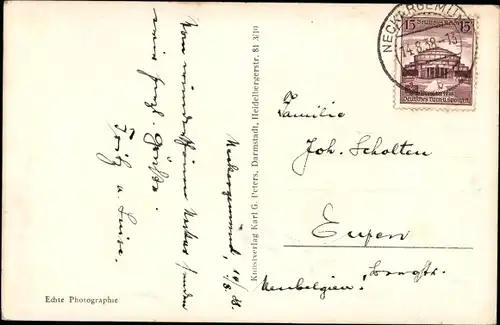 Neckargemünd, 14/8. 38.
Vom wunderschönen Neckar senden
viele herzl. Grüße.
Fritz u. Luise.
Echte Photographie
Kunstverlag Karl G. Peters, Darmstadt, Heidelbergerstr. 81 3/10
NECKARGEMÜND
14.8.38.-13
b
15 Deutsches Reich 15
Familie
Joh. Scholten
Eupen
Langstr.
Neubelgien!